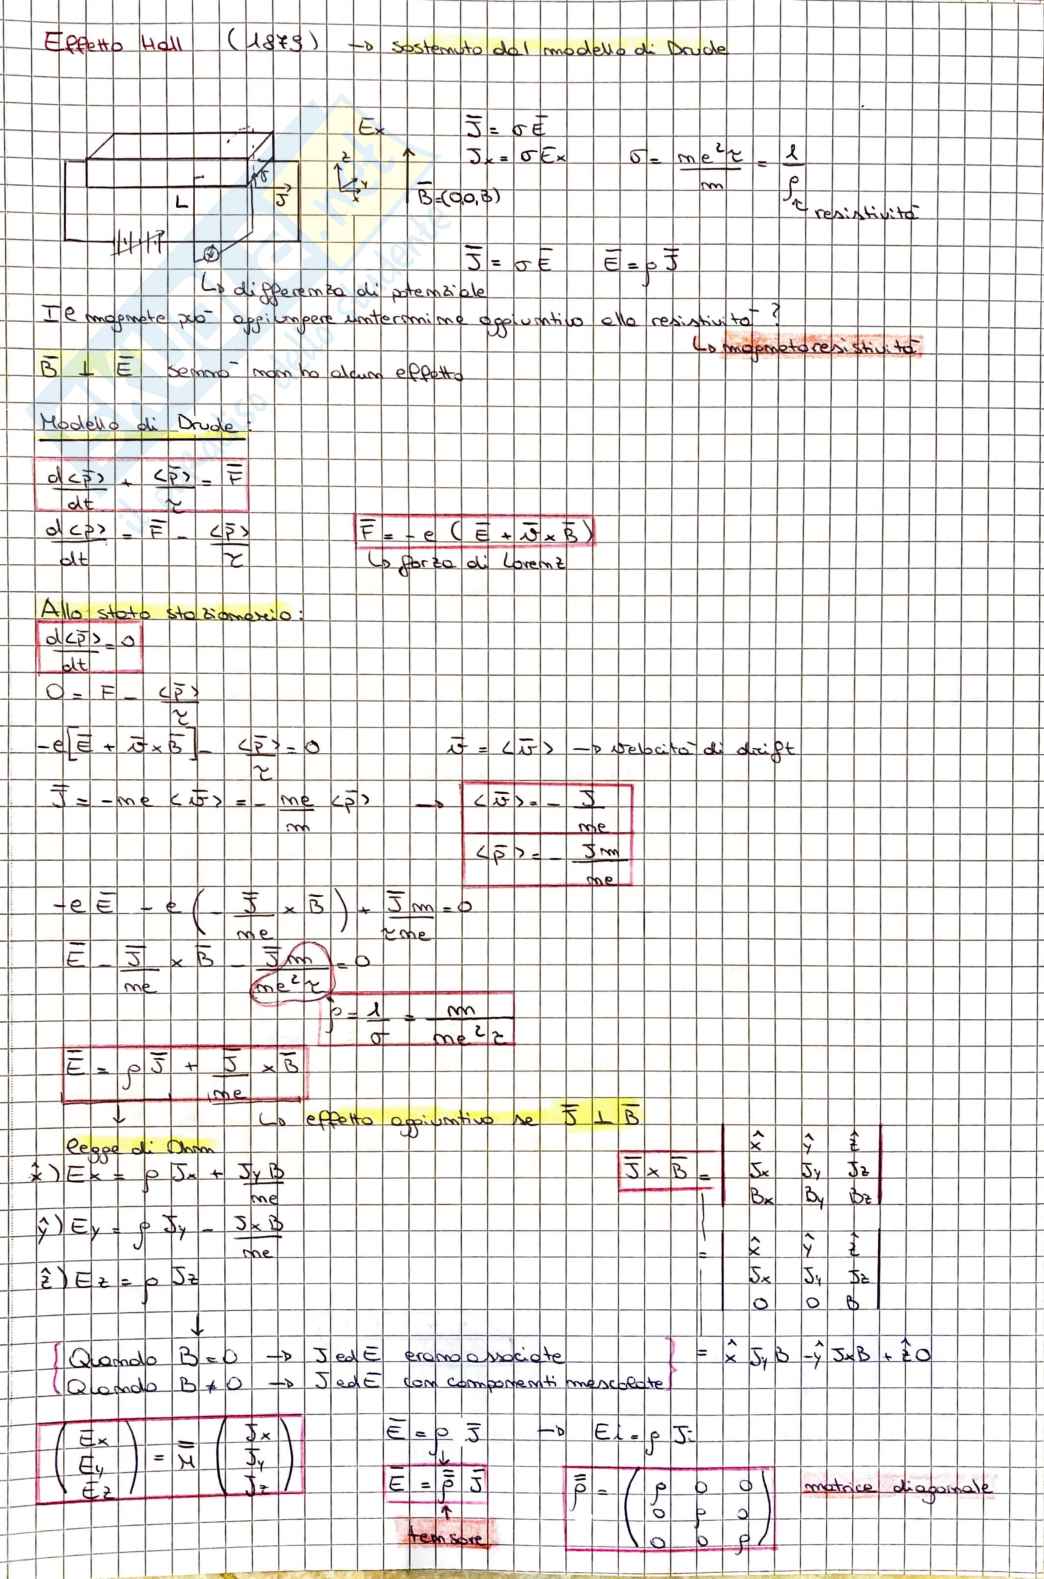 Effetto Hall (1879) → sostenuto dal modello di Drude
Ex
J̄ = σĒ
Jx = σEx
σ = ne²τ/m = 1/ρ
↳ resistività
z
y
x
B̄=(0,0,B)
L
J̄
V
J̄ = σĒ Ē = ρJ̄
↳ differenza di potenziale
Il magnete può aggiungere un termine aggiuntivo alla resistività?
↳ magnetoresistività
B̄ ⊥ Ē sennò non ho alcun effetto
Modello di Drude:
d<p̄>/dt + <p̄>/τ = F̄
d<p̄>/dt = F̄ - <p̄>/τ
F̄ = -e (Ē + v̄ × B̄)
↳ forza di Lorenz
Allo stato stazionario:
d<p̄>/dt = 0
0 = F - <p̄>/τ
-e[Ē + v̄ × B̄] - <p̄>/τ = 0 v̄ = <v̄> → velocità di drift
J̄ = -ne <v̄> = - ne/m <p̄> → <v̄> = - J̄/ne
<p̄> = - J̄m/ne
-eĒ - e(- J̄/ne × B̄) + J̄m/τne = 0
Ē - J̄/ne × B̄ - J̄m/ne²τ = 0
ρ = 1/σ = m/ne²τ
Ē = ρJ̄ + J̄/ne × B̄
↳ effetto aggiuntivo se J̄ ⊥ B̄
legge di Ohm
x̂) Ex = ρ Jx + JyB/ne
ŷ) Ey = ρ Jy - JxB/ne
ẑ) Ez = ρ Jz
J̄ × B̄ = | x̂ ŷ ẑ |
| Jx Jy Jz |
| Bx By Bz |
= | x̂ ŷ ẑ |
| Jx Jy Jz |
| 0 0 B |
= x̂ JyB - ŷ JxB + ẑ0
Quando B=0 → J ed E erano associate
Quando B≠0 → J ed E con componenti mescolate
(Ex Ey Ez) = M̿ (Jx Jy Jz)
Ē = ρ J̄ → Ei = ρ Ji
Ē = ρ̿ J̄
tensore
ρ̿ = ( ρ 0 0
0 ρ 0
0 0 ρ )
matrice diagonale